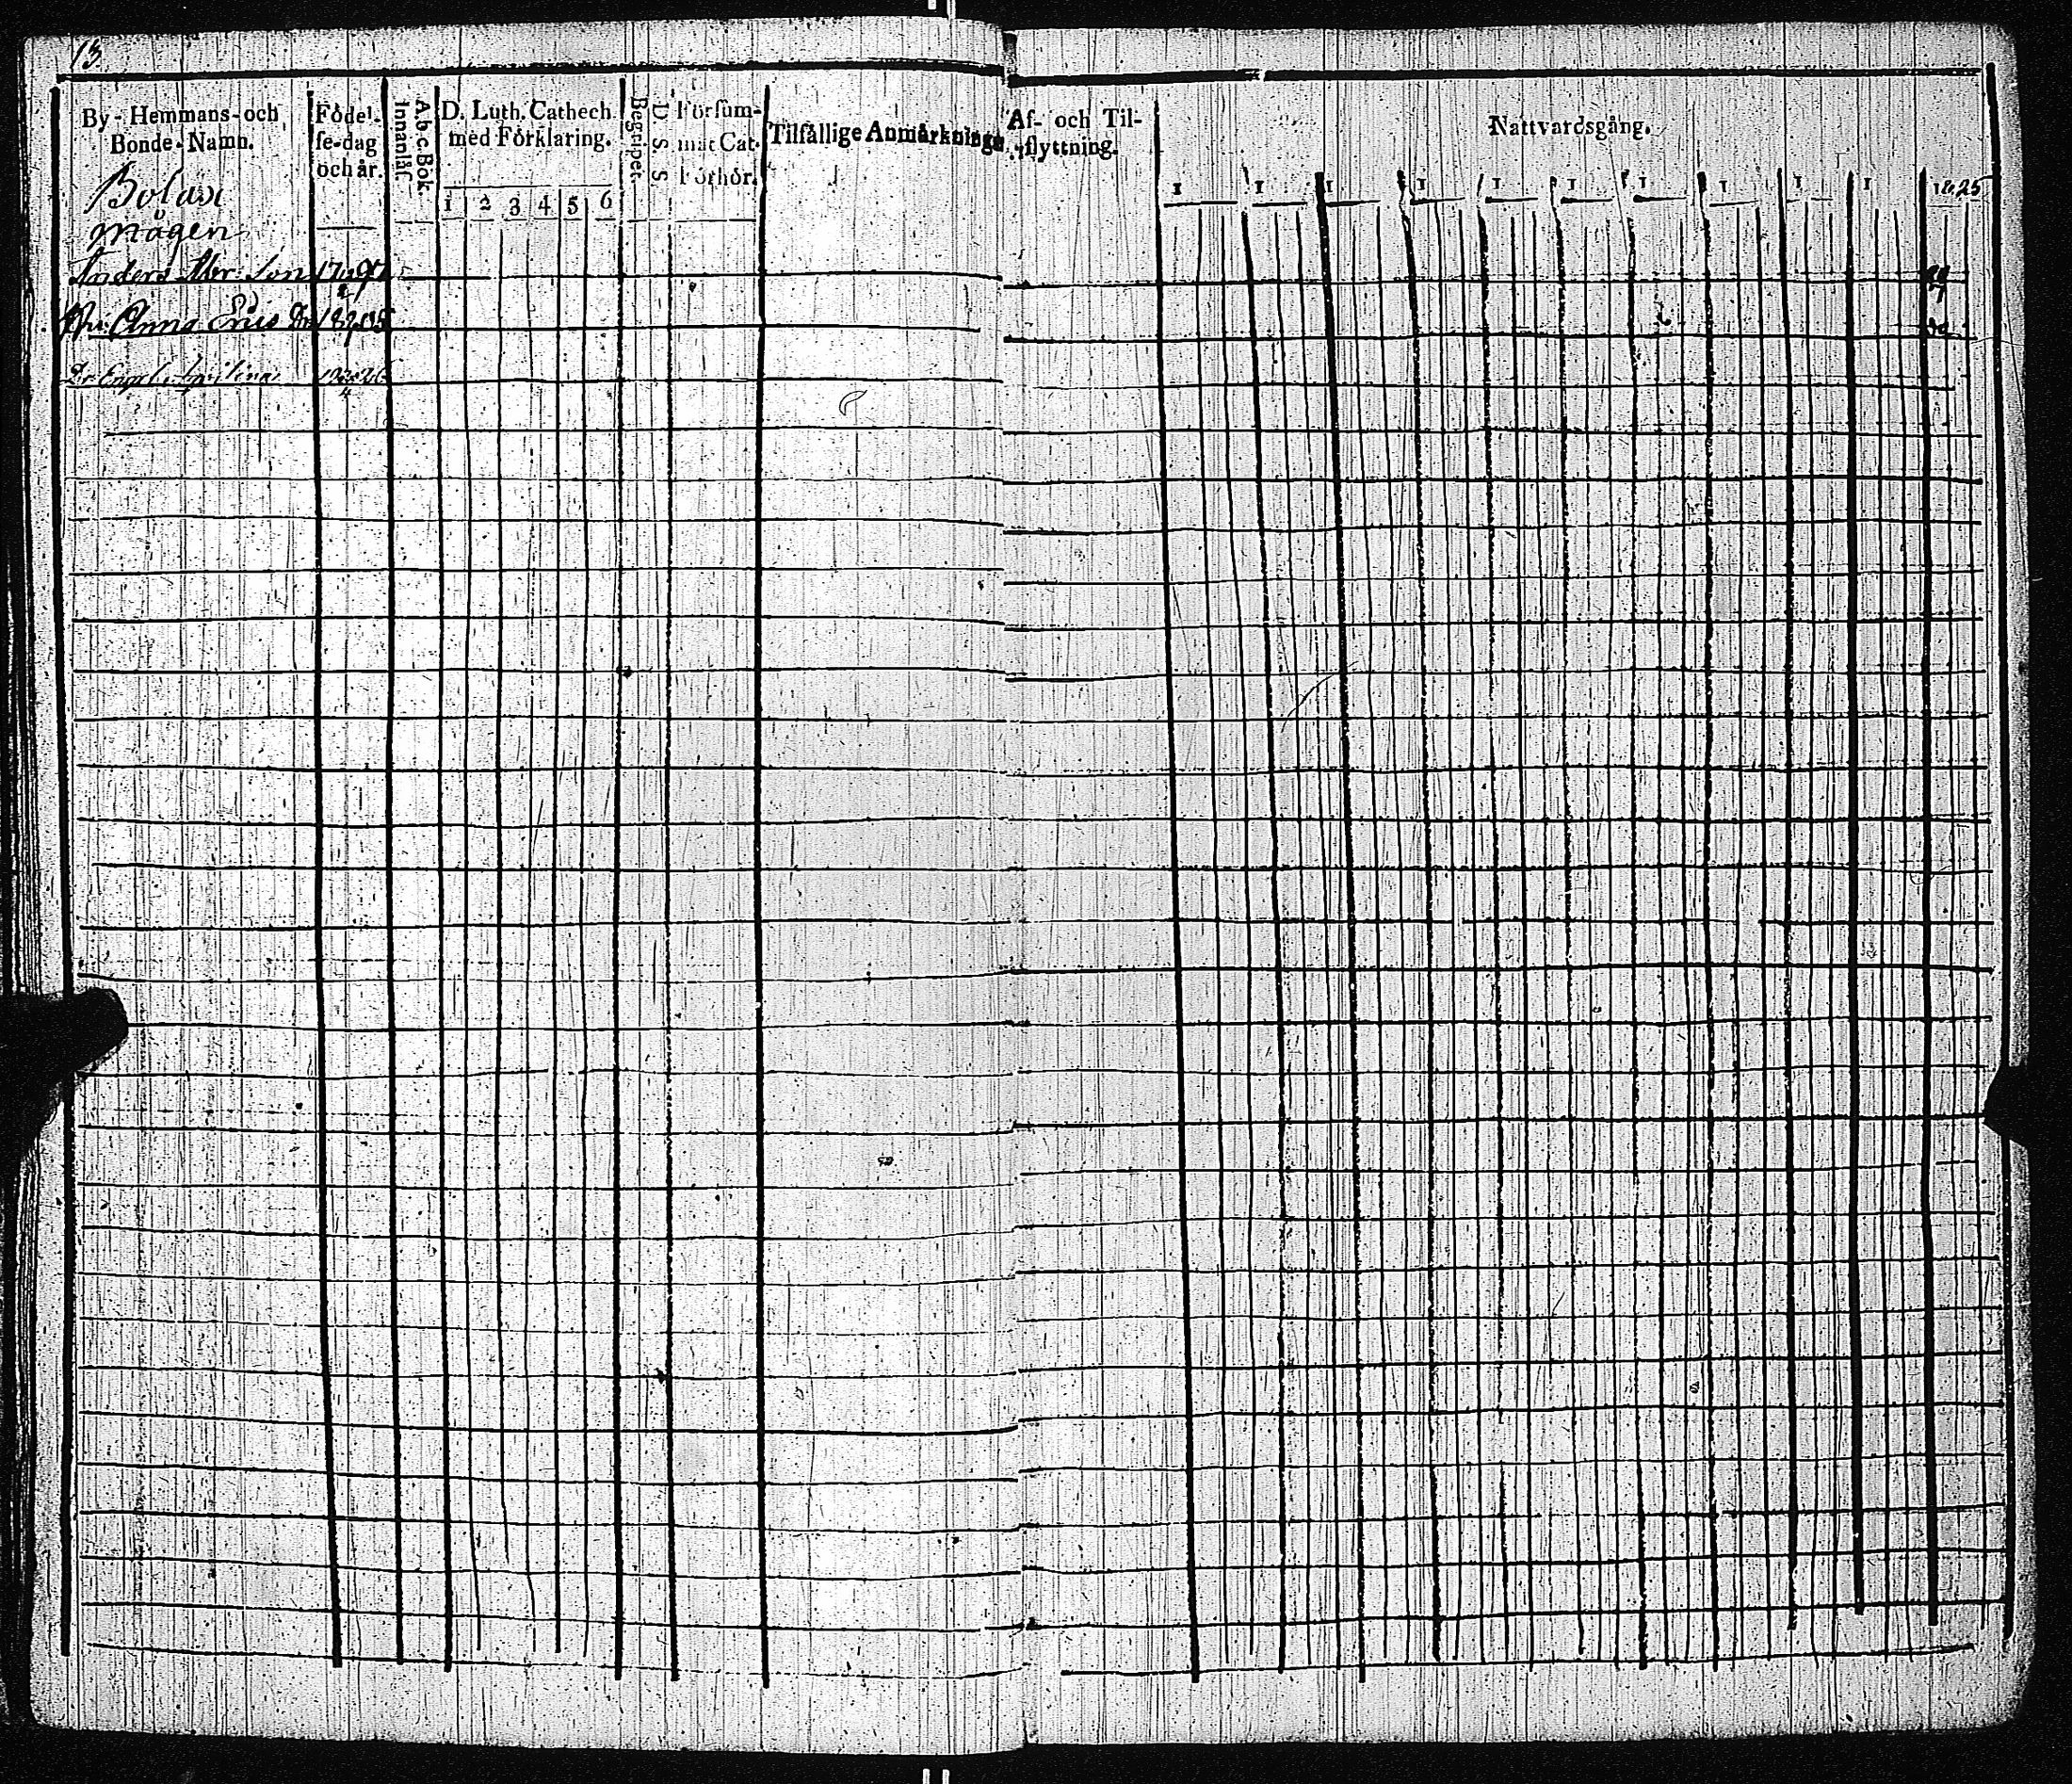 13
By-Hemmans-och
Bonde-Namn.
Födel-
se-dag
och år.
A.b.c.Bok.
Innanläs.
D. Luth. Cathech.
med Förklaring.
1 2 3 4 5 6
Begripet.
D. S. S.
Försum-
mat Cat.
Förhör.
Tilfällige Anmärkninga
Af- och Til-
flyttning.
Nattvardsgång.
1 1 1 1 1 1 1 1 1 1 1825
Bolax
mågen
Anders Abr: Son
Hu. Anna Erics Dr
do
Dr